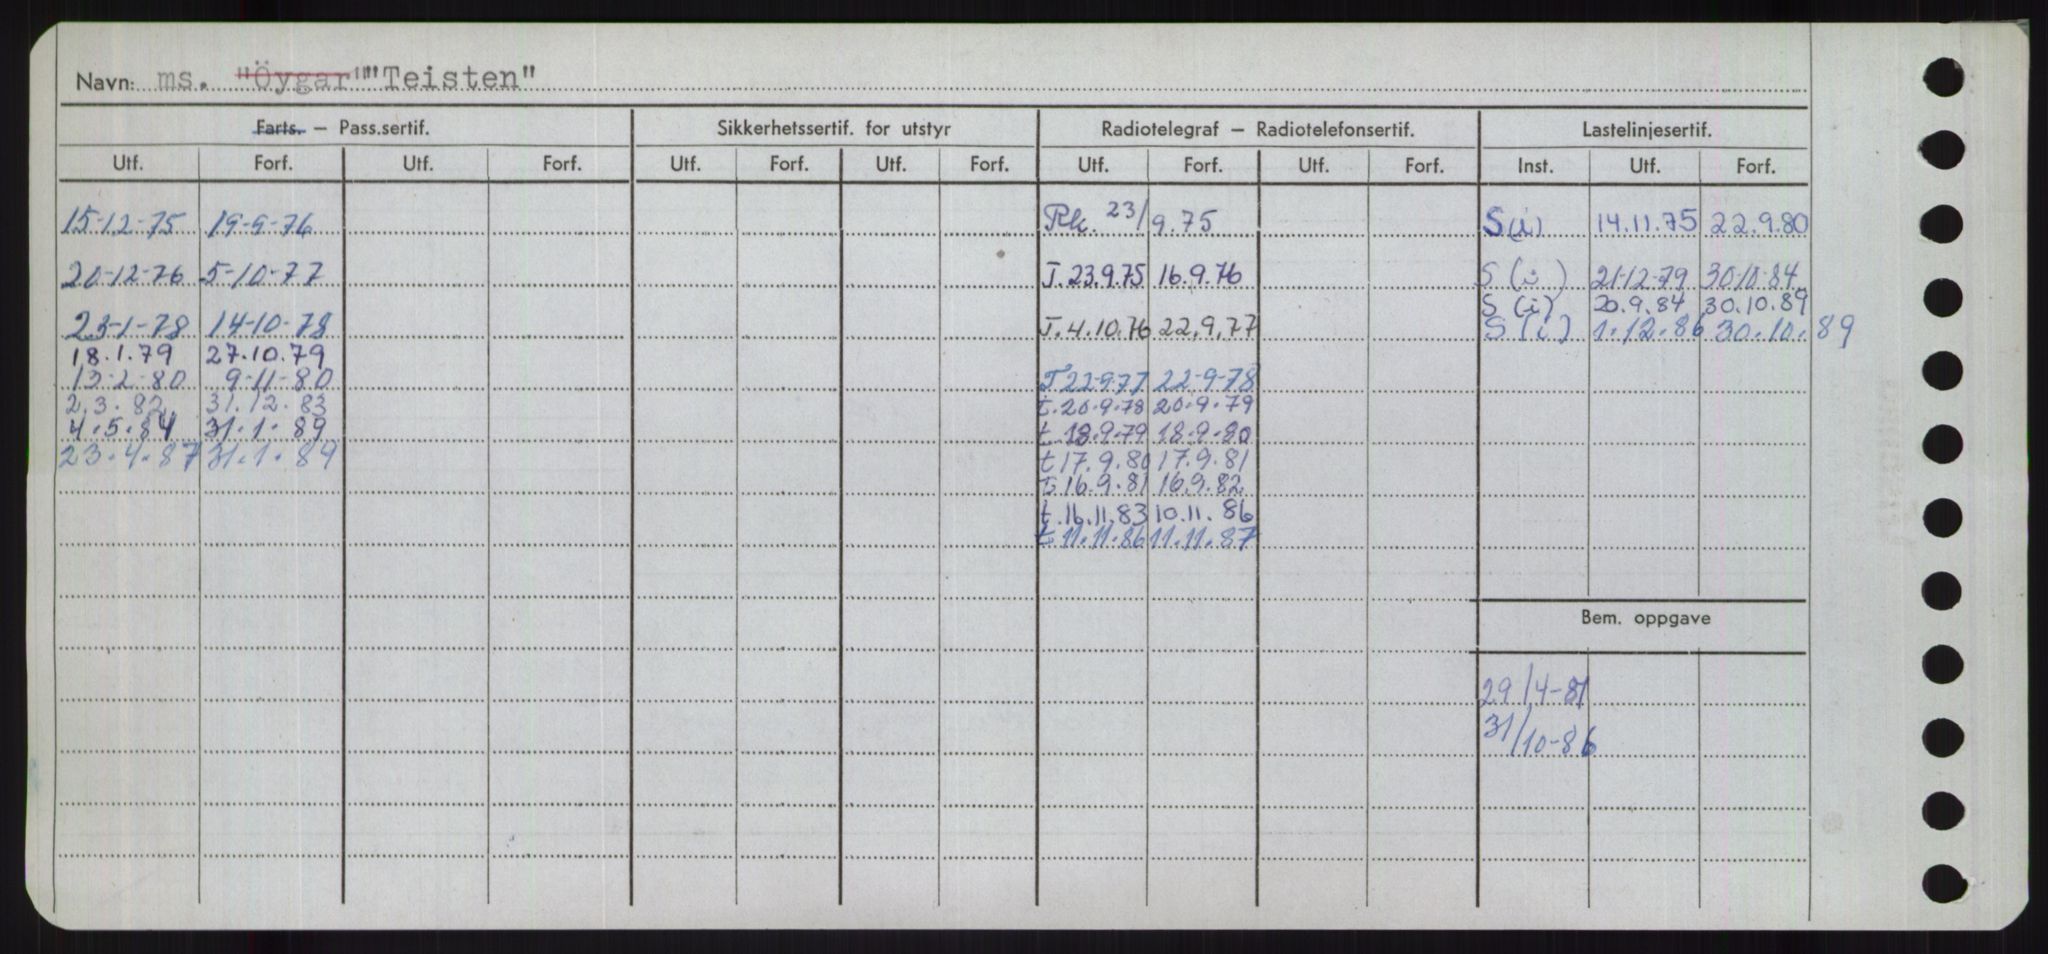 Navn: ms. "Öygar" "Teisten"
Farts. – Pass.sertif. Sikkerhetssertif. for utstyr Radiotelegraf – Radiotelefonsertif. Lastelinjesertif.
Utf. Forf. Utf. Forf. Utf. Forf. Utf. Forf. Utf. Forf. Utf. Forf. Inst. Utf. Forf.
15-12-75 19-9-76 Rk. 23/9.75 S(i) 14.11.75 22.9.80
20-12-76 5-10-77 T. 23.9.75 16.9.76 S (i) 21-12-79 30-10-84
S (i) 20.9.84 30.10.89
23-1-78 14-10-78 T. 4.10.76 22.9.77 S (i) 1.12.86 30.10.89
18.1.79 27.10.79
13-2-80 9-11-80 T 22-9-77 22-9-78
2.3.82 31.12.83 t. 20.9.78 20.9.79
4.5.84 31.1.89 t. 18.9.79 18.9.80
23.4.87 31.1.89 t 17.9.80 17.9.81
t. 16.9.81 16.9.82
t. 16.11.83 10.11.86
t. 11.11.86 11.11.87
Bem. oppgave
29/4-81
31/10-86